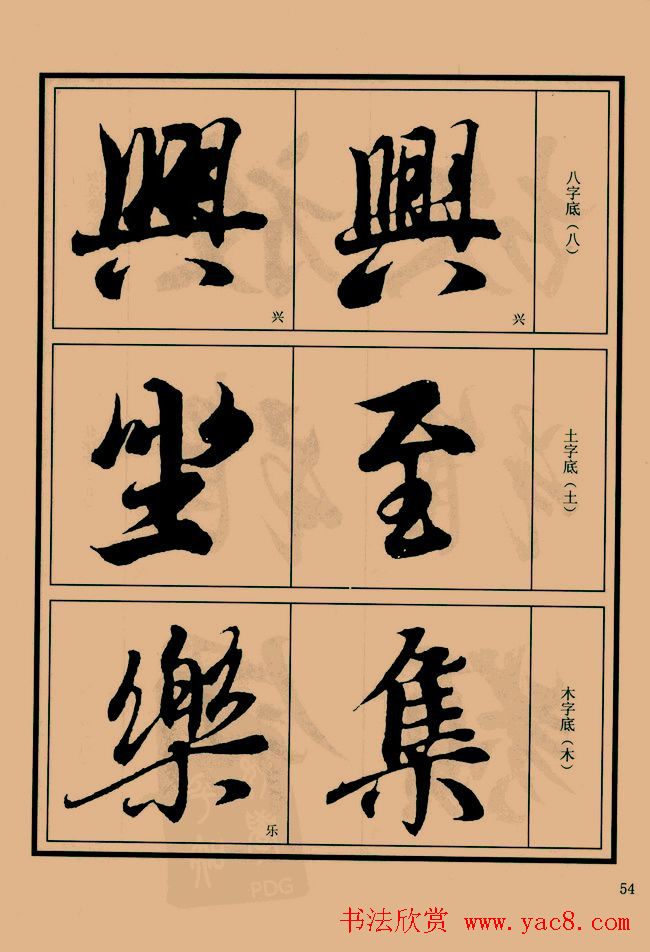 八字底（八）
興
兴
興
兴
土字底（土）
至
坐
木字底（木）
集
樂
乐
54
书法欣赏 www.yac8.com
PDG